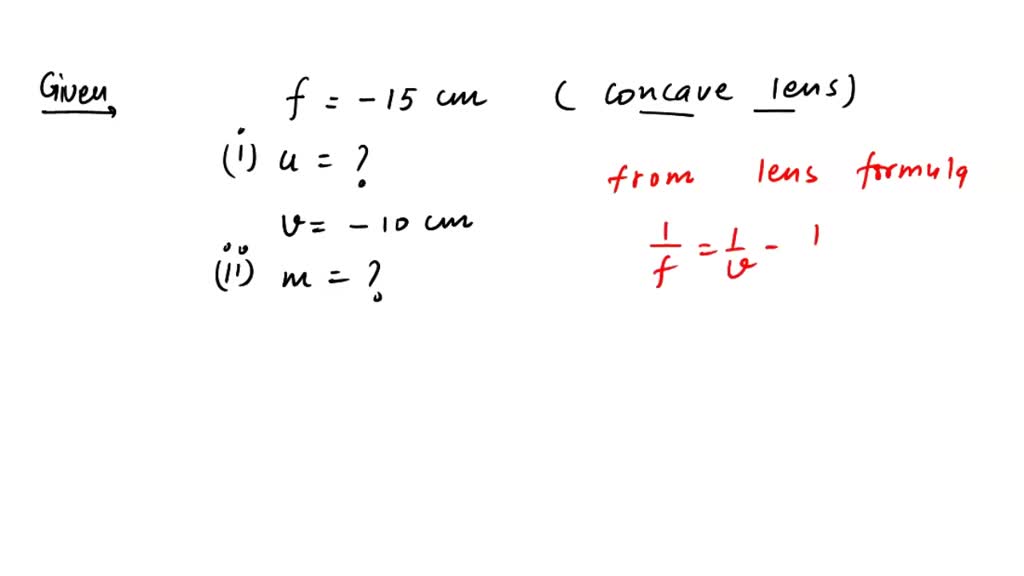 Given f = -15 cm ( concave lens)
(i) u = ?
v = -10 cm
(ii) m = ?
from lens formula
1/f = 1/v - 1